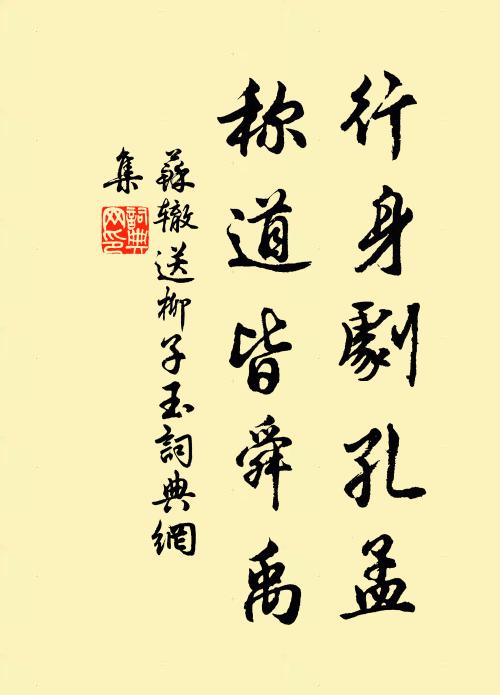 行身劇孔孟
称道皆舜禹
蘇辙送柳子玉詞典網
集
詞典網印